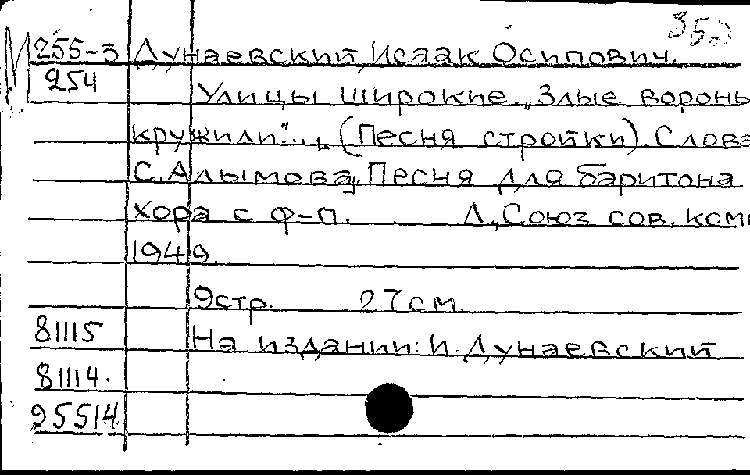 352
М 255-3 Дунаевский, Исаак Осипович.
254 Улицы широкие. "Злые вороны
кружили"... (Песня стройки). Слова
С. Алымова. Песня для баритона
хора с ф-п. Л., Союз сов. комп
1949.
9стр. 27см.
81115 На издании: И. Дунаевский
81114.
25514